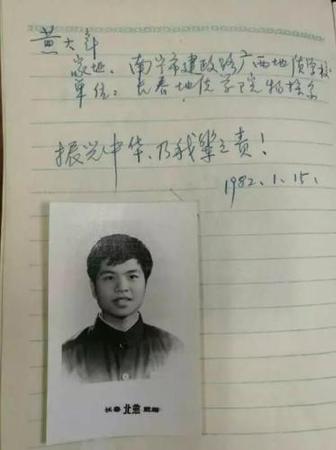 黄大年
家址：南宁市建政路广西地质学校
单位：长春地质学院物探系
振兴中华，乃我辈之责！
1982.1.15.
长春 北燕